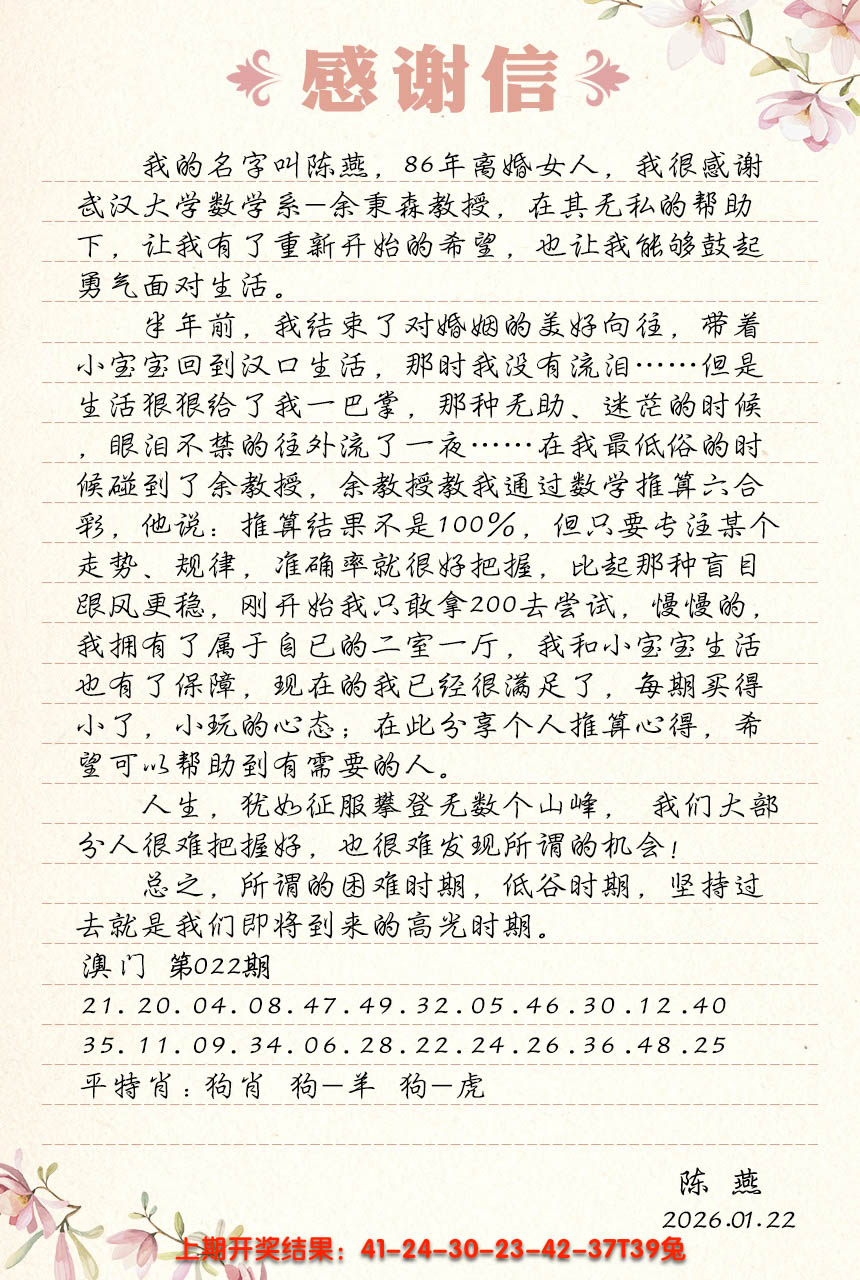 感谢信
我的名字叫陈燕，86年离婚女人，我很感谢
武汉大学数学系—余秉森教授，在其无私的帮助
下，让我有了重新开始的希望，也让我能够鼓起
勇气面对生活。
半年前，我结束了对婚姻的美好向往，带着
小宝宝回到汉口生活，那时我没有流泪……但是
生活狠狠给了我一巴掌，那种无助、迷茫的时候
，眼泪不禁的往外流了一夜……在我最低俗的时
候碰到了余教授，余教授教我通过数学推算六合
彩，他说：推算结果不是100%，但只要专注某个
走势、规律，准确率就很好把握，比起那种盲目
跟风更稳，刚开始我只敢拿200去尝试，慢慢的，
我拥有了属于自已的二室一厅，我和小宝宝生活
也有了保障，现在的我已经很满足了，每期买得
小了，小玩的心态；在此分享个人推算心得，希
望可以帮助到有需要的人。
人生，犹如征服攀登无数个山峰， 我们大部
分人很难把握好，也很难发现所谓的机会！
总之，所谓的困难时期，低谷时期，坚持过
去就是我们即将到来的高光时期。
澳门 第022期
21.20.04.08.47.49.32.05.46.30.12.40
35.11.09.34.06.28.22.24.26.36.48.25
平特肖：狗肖 狗—羊 狗—虎
陈 燕
2026.01.22
上期开奖结果：41-24-30-23-42-37T39兔